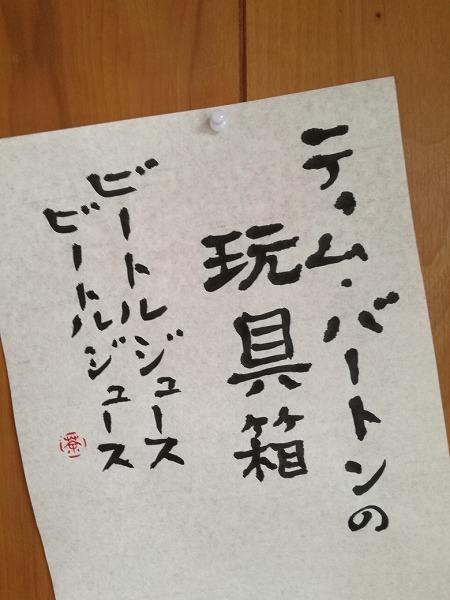 ティム・バートンの
玩具箱
ビートルジュース
ビートルジュース
茶